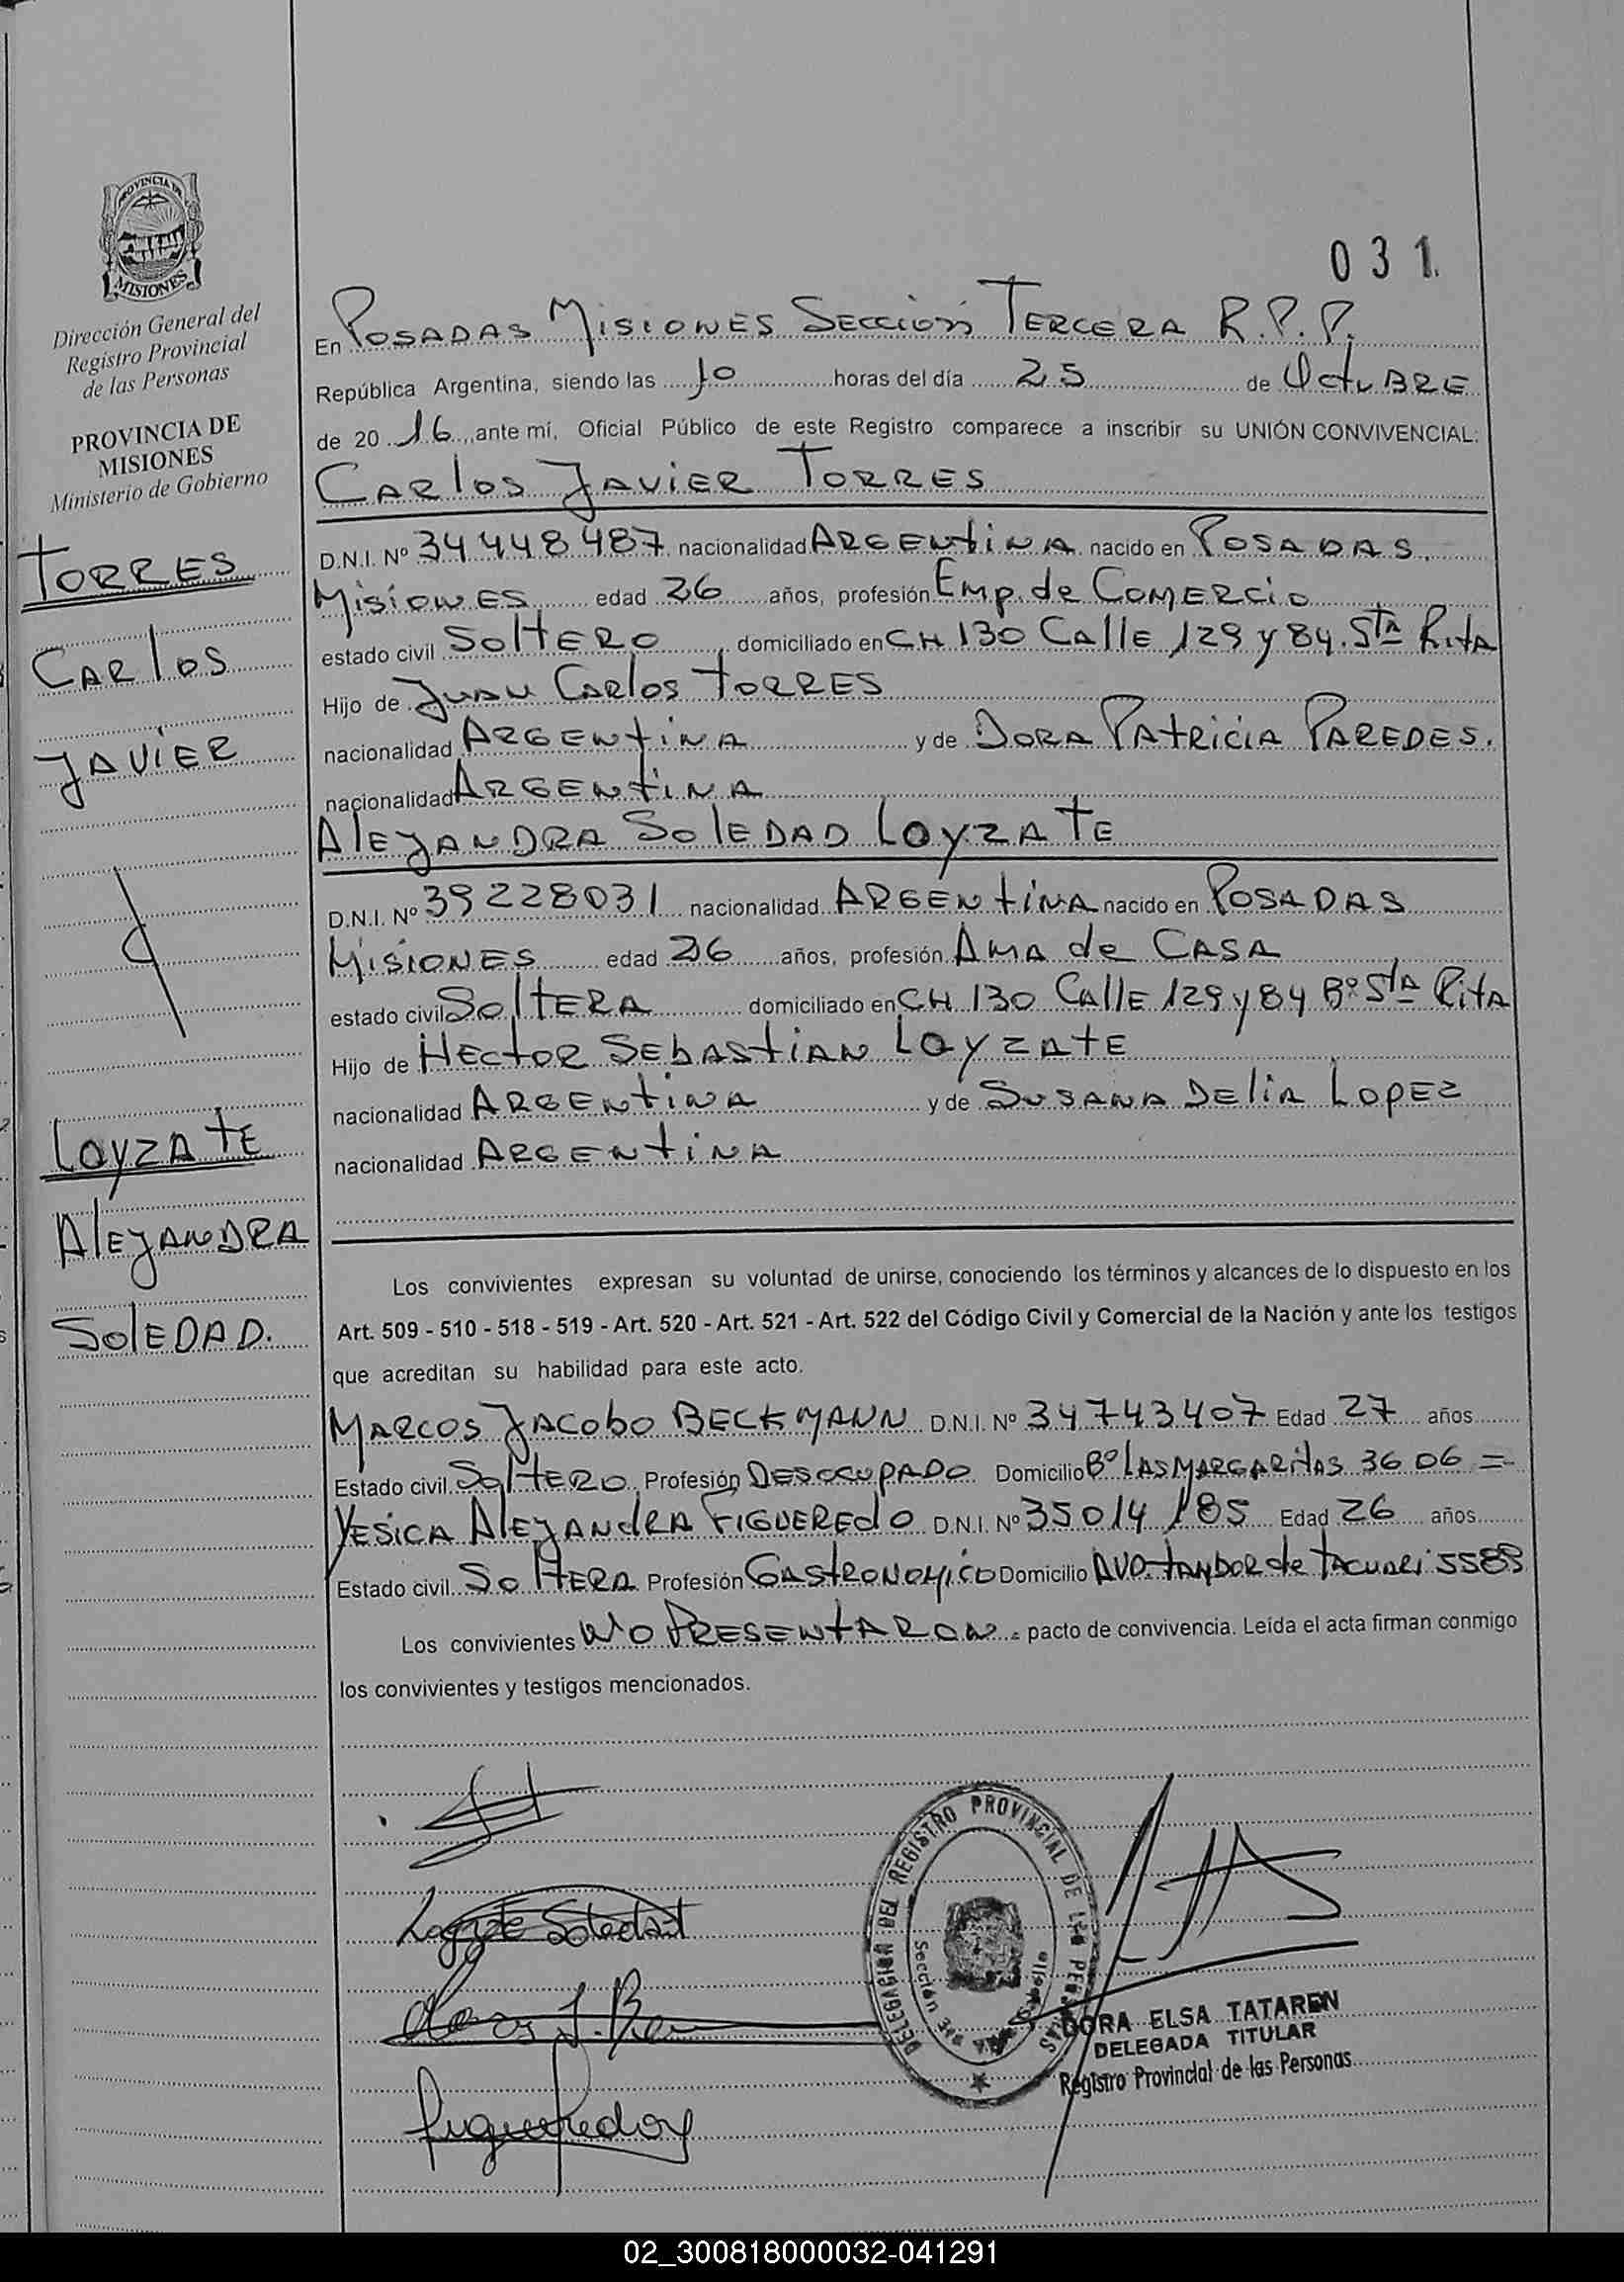 PROVINCIA DE
MISIONES
Dirección General del
Registro Provincial
de las Personas
PROVINCIA DE
MISIONES
Ministerio de Gobierno
TORRES
CARLOS
JAVIER
LOYZATE
ALEJANDRA
SOLEDAD.
031
En POSADAS MISIONES SECCION TERCERA R.P.P.
República Argentina, siendo las 10 horas del día 25 de OCTUBRE
de 20 16, ante mí, Oficial Público de este Registro comparece a inscribir su UNIÓN CONVIVENCIAL:
CARLOS JAVIER TORRES
D.N.I. Nº 34448487 nacionalidad ARGENTINA nacido en POSADAS.
MISIONES edad 26 años, profesión EMP. de COMERCIO
estado civil SOLTERO, domiciliado en CH 130 CALLE 129 y 84. STA RITA
Hijo de JUAN CARLOS TORRES
nacionalidad ARGENTINA y de DORA PATRICIA PAREDES.
nacionalidad ARGENTINA
ALEJANDRA SOLEDAD LOYZATE
D.N.I. Nº 39228031 nacionalidad ARGENTINA nacido en POSADAS
MISIONES edad 26 años, profesión AMA de CASA
estado civil SOLTERA domiciliado en CH 130 CALLE 129 y 84 Bº STA RITA
Hijo de HECTOR SEBASTIAN LOYZATE
nacionalidad ARGENTINA y de SUSANA DELIA LOPEZ
nacionalidad ARGENTINA
Los convivientes expresan su voluntad de unirse, conociendo los términos y alcances de lo dispuesto en los
Art. 509 - 510 - 518 - 519 - Art. 520 - Art. 521 - Art. 522 del Código Civil y Comercial de la Nación y ante los testigos
que acreditan su habilidad para este acto.
MARCOS JACOBO BECKMANN D.N.I. Nº 34743407 Edad 27 años
Estado civil SOLTERO Profesión DESOCUPADO Domicilio Bº LAS MARGARITAS 3606 =
YESICA ALEJANDRA FIGUEREDO D.N.I. Nº 35014185 Edad 26 años
Estado civil SOLTERA Profesión GASTRONOMICO Domicilio AVD. TAMBOR de TACUARI 5589
Los convivientes NO PRESENTARON = pacto de convivencia. Leída el acta firman conmigo
los convivientes y testigos mencionados.
Loyzate Soledad
DELEGACION DEL REGISTRO PROVINCIAL DE LAS PERSONAS
Sección
DORA ELSA TATAREN
DELEGADA TITULAR
Registro Provincial de las Personas
Figueredo
02_300818000032-041291